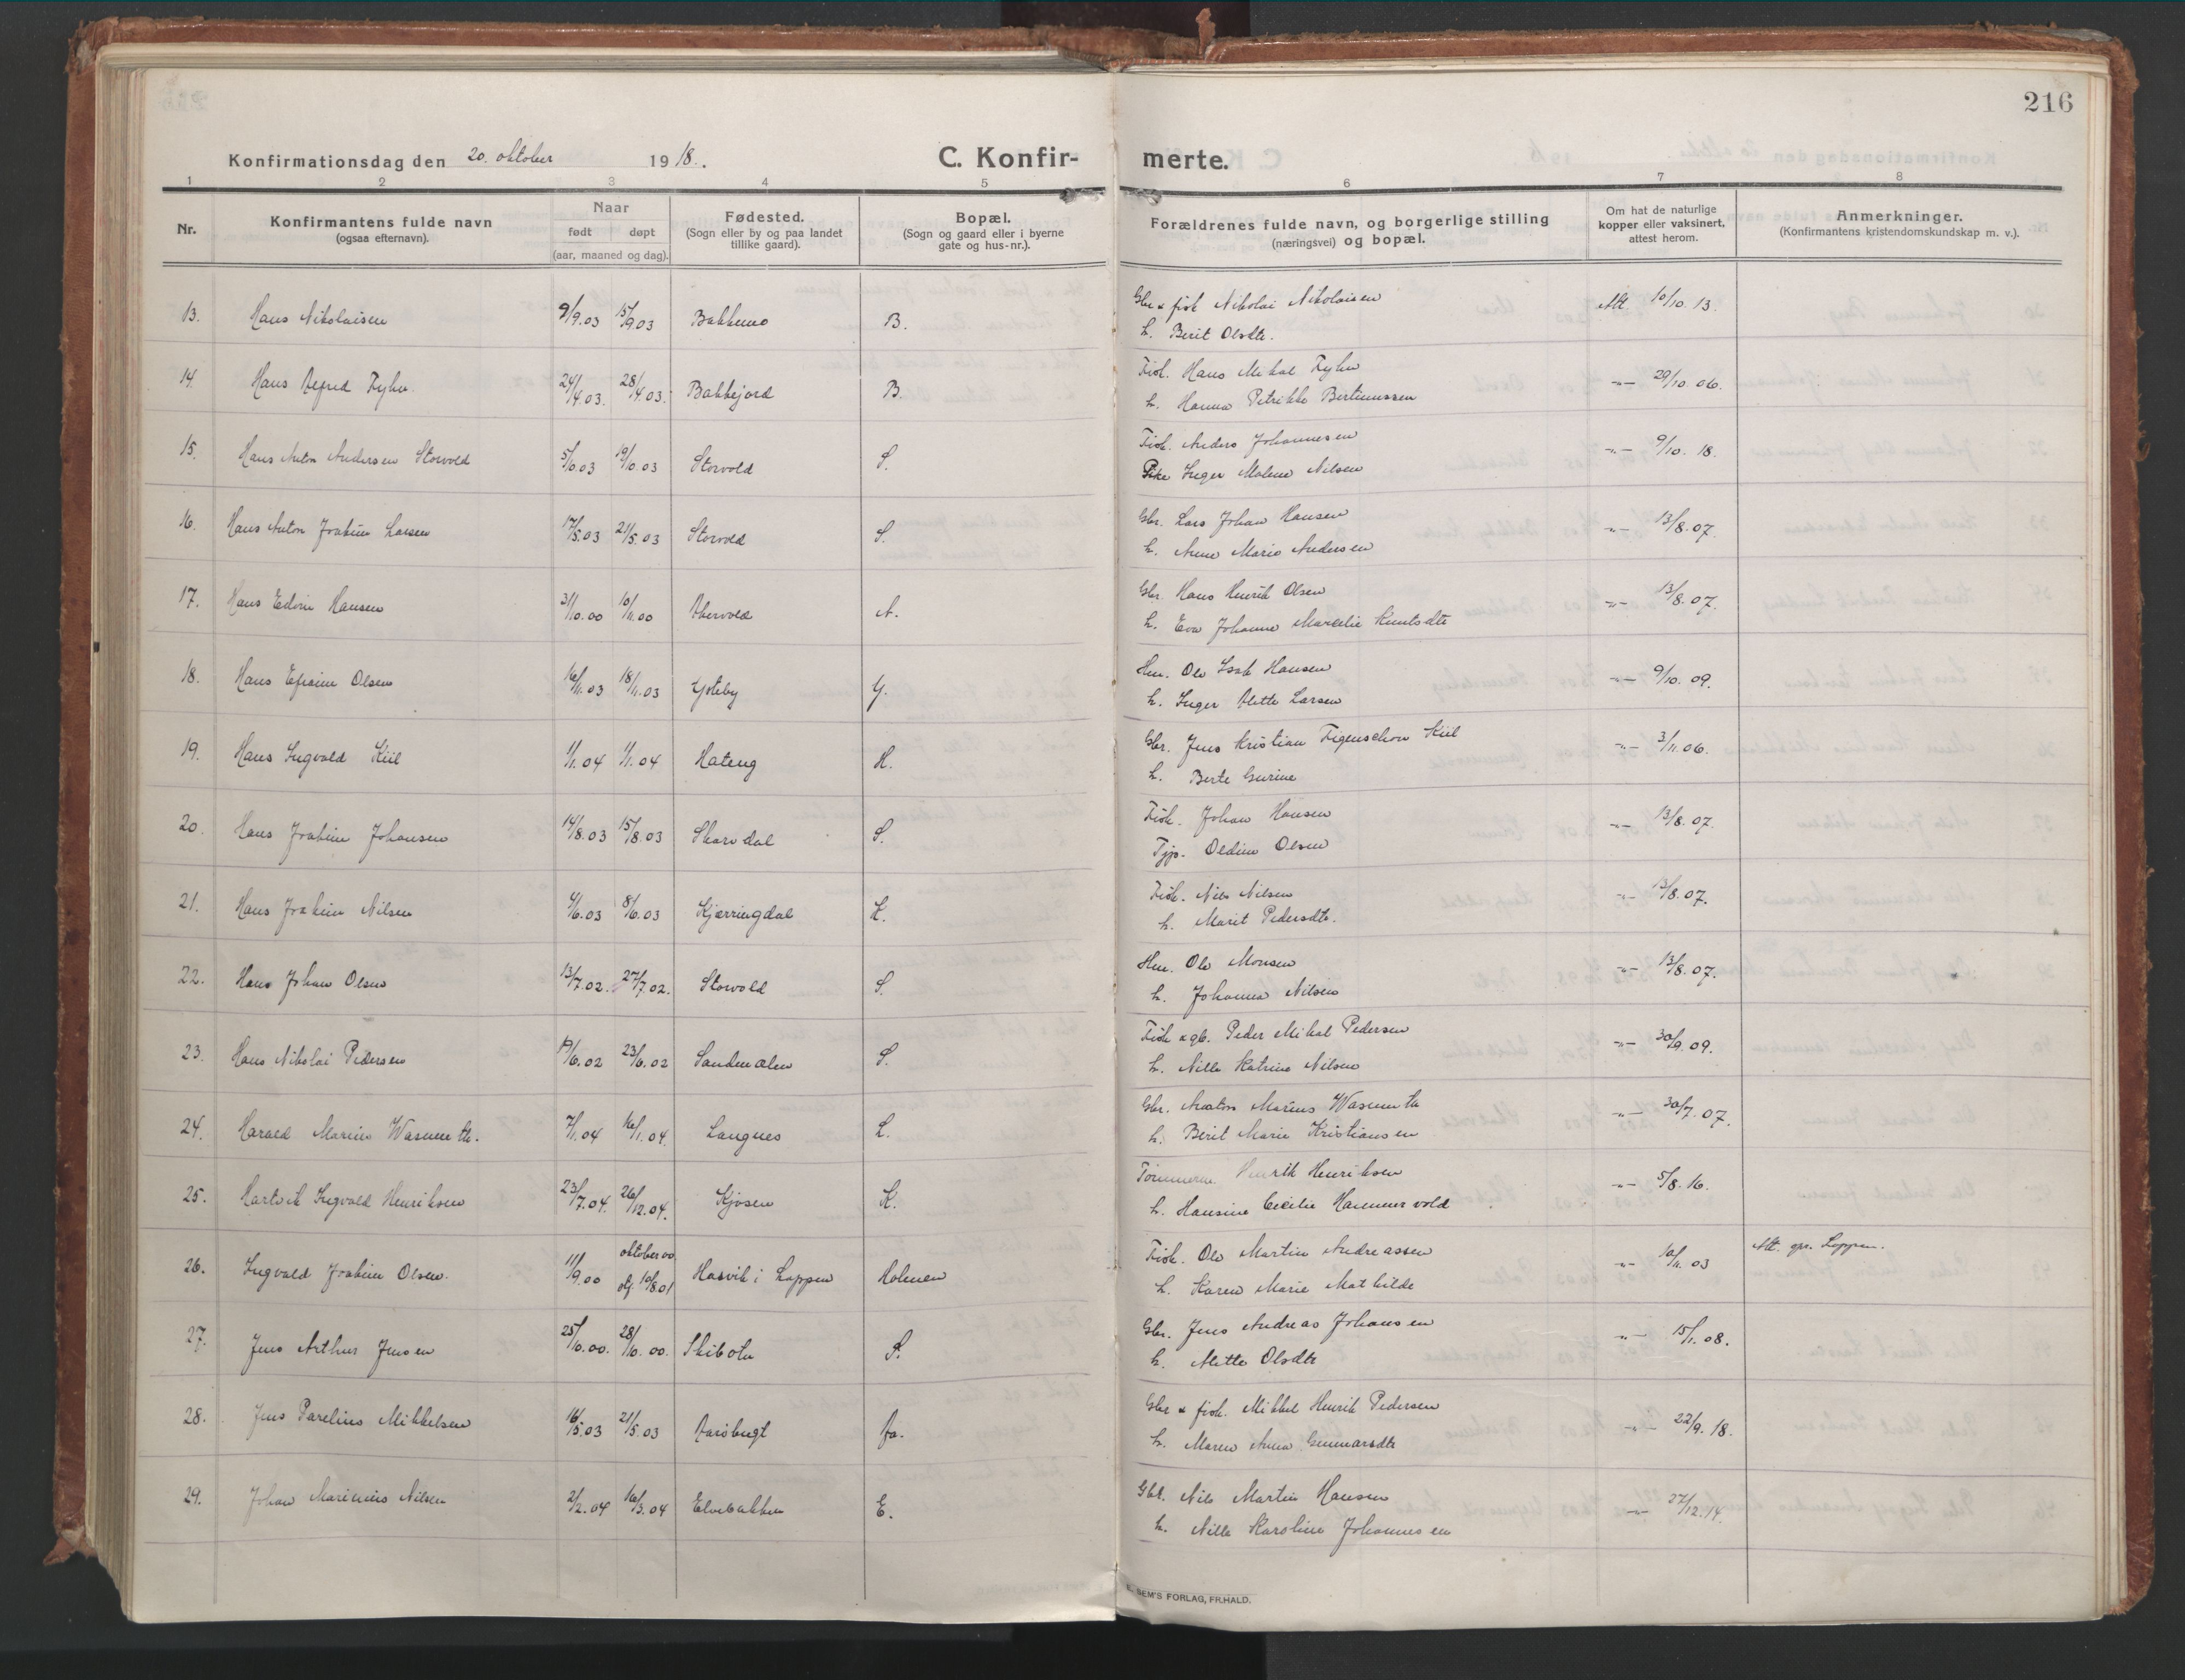 216
Konfirmationsdag den 20. oktober 1918. C. Konfirmerte.
1 2 3 4 5 6 7 8
Nr.
Konfirmantens fulde navn
(ogsaa efternavn).
Naar
født døpt
(aar, maaned og dag).
Fødested.
(Sogn eller by og paa landet
tillike gaard).
Bopæl.
(Sogn og gaard eller i byerne
gate og hus-nr.).
Forældrenes fulde navn, og borgerlige stilling
(næringsvei) og bopæl.
Om hat de naturlige
kopper eller vaksinert,
attest herom.
Anmerkninger.
(Konfirmantens kristendomskundskap m. v.).
13. Hans Nikolaisen 9/9.03 15/9.03 Bakkemo B. Gbr & fisk Nikolai Nikolaisen Att. 10/10.13.
h. Berit Olsdtr.
14. Hans Alfred Fyhn. 24/4.03. 28/4.03. Bakkejord B. Fisk. Hans Mikal Fyhn -"- 29/10.06.
h. Hanna Petrikke Bertinussen
15. Hans Anton Andersen Storvold 5/10.03 19/10.03 Storvold S. Fisk. Anders Johannesen -"- 9/10.18.
Pike Inger Malene Nilsen
16. Hans Anton Joakim Larsen 17/5.03 21/5.03 Storvold S. Gbr. Lars Johan Hansen -"- 13/8.07.
h. Anne Marie Andersen
17. Hans Edvin Hansen 31/10.00 10/11.00 Akervold A. Gbr. Hans Henrik Olsen -"- 13/8.07.
h. Eva Johanne Marcelie Knutsdtr
18. Hans Efraim Olsen 16/11.03 18/11.03 Goteby G. Hm. Ole Isak Hansen -"- 9/10.09.
h. Inger Alette Larsen
19. Hans Ingvald Kiil 1/1.04 1/1.04 Hateng H. Gbr. Jens Kristian Figenschou Kiil -"- 3/11.06.
h. Berte Gurine
20. Hans Joakim Johansen 14/8.03 15/8.03 Skardal S. Fisk. Johan Hansen -"- 13/8.07.
Tjp. Oldine Olsen
21. Hans Joakim Nilsen 4/6.03 8/6.03 Kjærringdal K. Fisk. Nils Nilsen -"- 13/8.07.
h. Marit Pedersdtr.
22. Hans Johan Olsen 13/7.02. 27/7.02. Storvold S. Hm. Ole Monsen -"- 13/8.07.
h. Johanna Nilsen
23. Hans Nikolai Pedersen 19/6.02 23/6.02 Sandmælen S. Fisk & gb. Peder Mikal Pedersen -"- 30/9.09.
h. Nille Katrine Nilsen
24. Harald Marius Wasmuth. 7/1.04 16/1.04. Langnes L. Gbr. Anton Marius Wasmuth -"- 30/7.07.
h. Berit Marie Kristiansen
25. Hartvik Ingvald Henriksen 23/7.04. 26/12.04. Kjosen K. Tømmerm. Henrik Henriksen -"- 5/8.16.
h. Hansine Cecilie Hammervold
26. Ingvald Joakim Olsen. 11/9.00 oktober 00 Hasvik i Loppen Holmen Fisk. Ole Martin Andreassen -"- 10/11.03 Att. spr. Loppen.
10/8.01 h. Karen Marie Mathilde
27. Jens Arthur Jensen 25/10.00. 28/10.00. Skibotn S. Gbr. Jens Andreas Johansen -"- 15/1.08.
h. Mette Olsdtr
28. Jens Parelius Mikkelsen 16/5.03 21/5.03 Aarøbugt Aa. Gbr & fisk. Mikkel Henrik Pedersen -"- 22/9.18.
h. Maren Anna Gunnarsdtr
29. Johan Marinius Nilsen 2/2.04 16/3.04 Elvebakken E. Gbr. Nils Martin Hansen -"- 27/12.14.
h. Nille Karoline Johannesen
E. SEM'S FORLAG, FR.HALD.